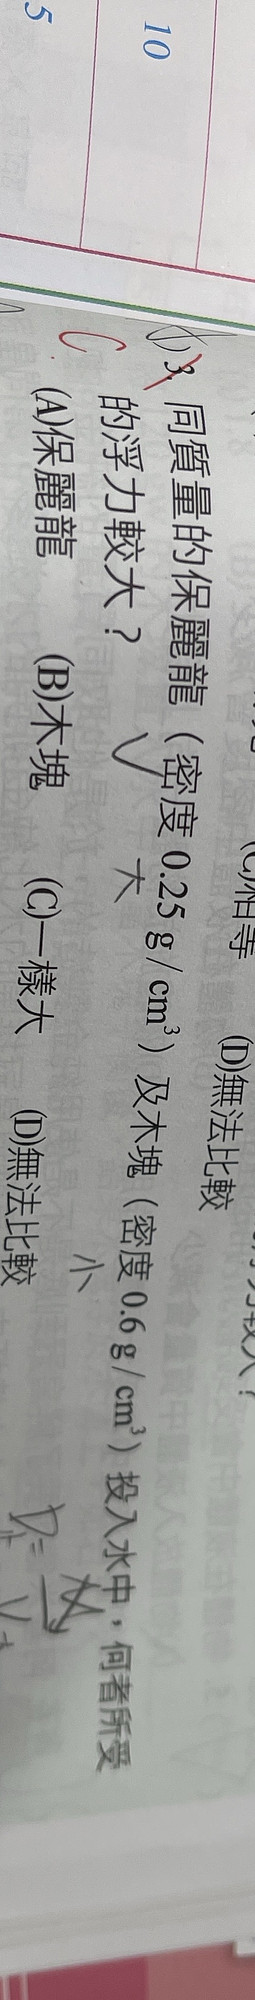 10
5
(C)相等 (D)無法比較
C
3. 同質量的保麗龍（密度 0.25 g/cm³）及木塊（密度 0.6 g/cm³）投入水中，何者所受
大
小
的浮力較大？
(A)保麗龍 (B)木塊 (C)一樣大 (D)無法比較
D=